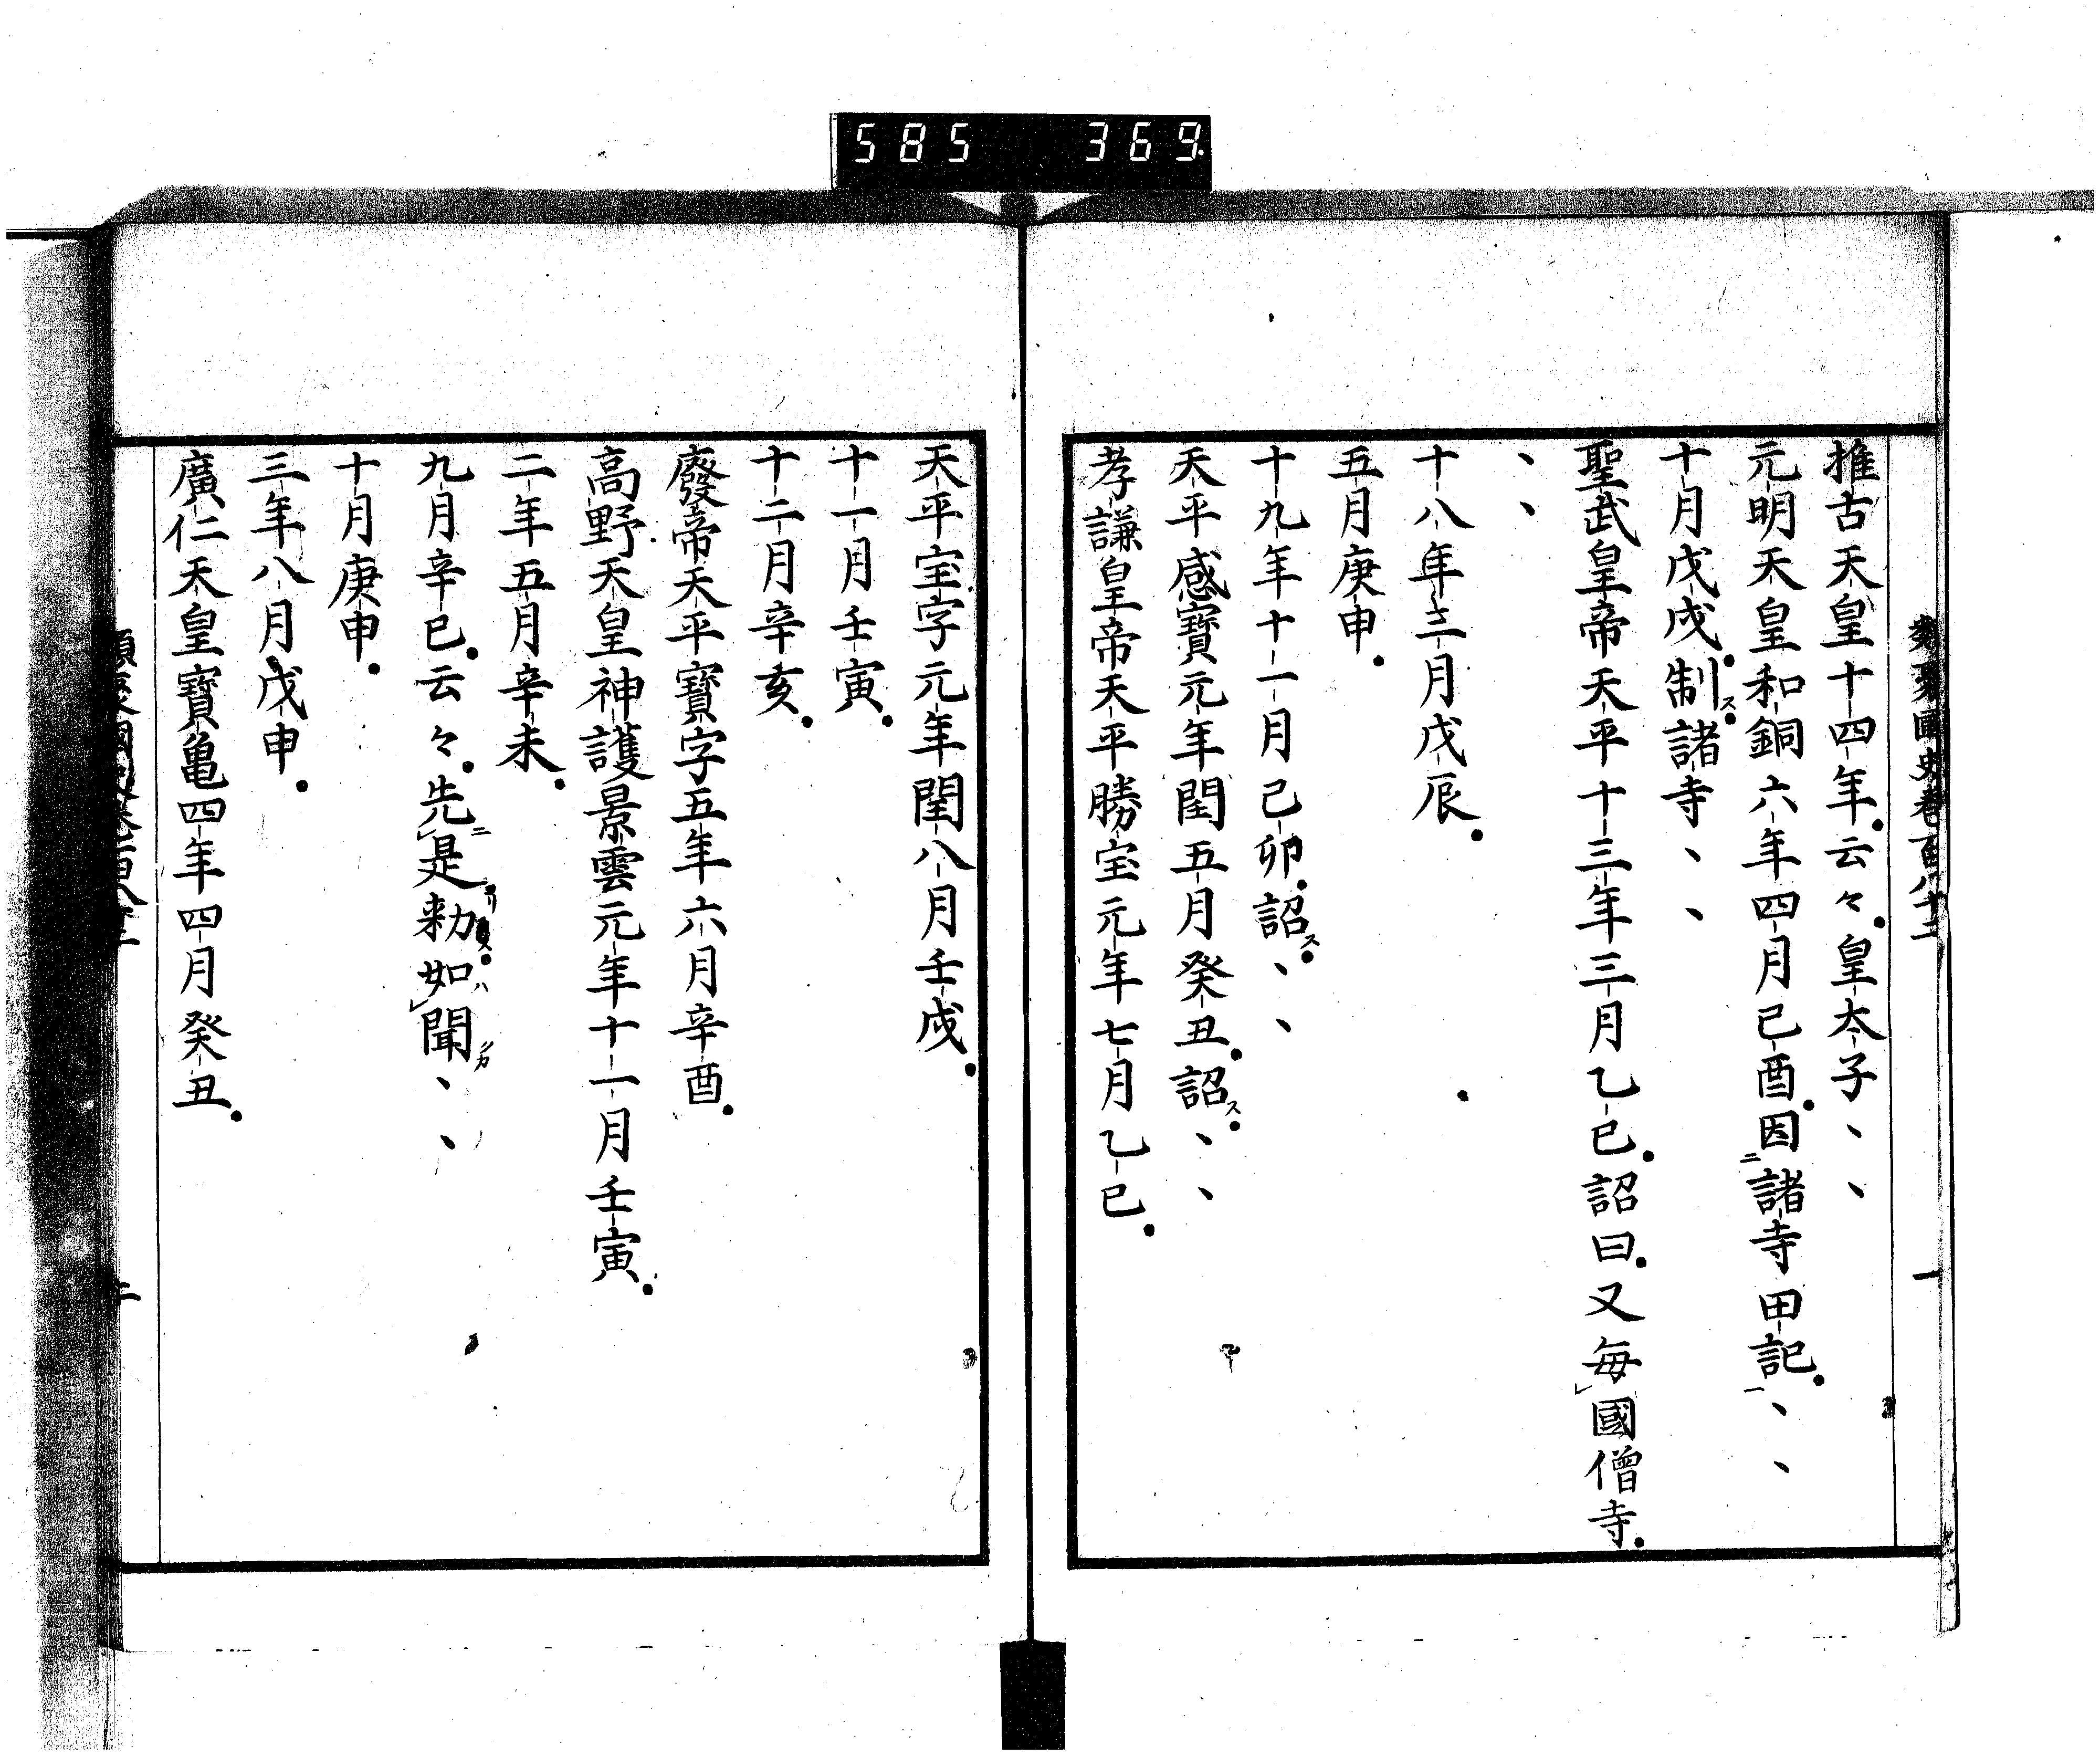 585 369
類聚國史卷百八十二 一
推古天皇十四年云々皇太子、、
元明天皇和銅六年四月己酉因ニ諸寺田記一、、
十月戊戌制ス諸寺、、
聖武皇帝天平十三年三月乙巳詔曰又毎レ國僧寺
、、
十八年三月戊辰
五月庚申
十九年十一月己卯詔ス、、
天平感寶元年閏五月癸丑詔ス、、
孝謙皇帝天平勝宝元年七月乙巳
天平宝字元年閏八月壬戌
十一月壬寅
十二月辛亥
廢帝天平寶字五年六月辛酉
高野天皇神護景雲元年十一月壬寅
二年五月辛未
九月辛巳云々先レ是ニ勅如レハ聞ノカ、、
十月庚申
三年八月戊申
廣仁天皇寶亀四年四月癸丑
類聚國史卷百八十二 二